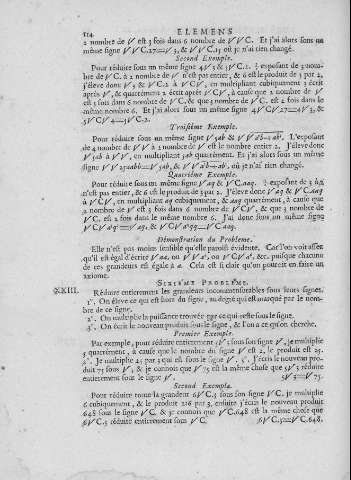 114 ELEMENS
2 nombre de V est 3 fois dans 6 nombre de V V C. Et j'ai alors sous un
même signe V V C.27=V 3, & V V C.15 où je n'ai rien changé.
Second Exemple.
Pour réduire sous un même signe 4V 3 & 5V C.2. exposant de 3 nom-
bre de V C, à 2 nombre de V n'est pas entier, & 6 est le produit de 3 par 2,
j'éleve donc V 3 & V C.2 à V C V, en multipliant cubiquement 3 écrit
après V, & quarrément 2 écrit après V C, à cause que 2 nombre de V
est 3 fois dans 6 nombre de V C, & que 3 nombre de V C, est 2 fois dans le
même nombre 6. J'ai alors sous un même signe 4V C V.27=4V 3, &
5V C V 4=5V C.2.
Troisiéme Exemple.
Pour réduire sous un même signe V 5ab & V V ab, L'exposant
de 4 nombre de V V à 2 nombre de V est le nombre entier 2. J'éleve donc
V 5ab à V V, en multipliant 5ab quarrément. Et j'ai alors sous un même
signe V V 25aabb=V 5ab, & V V, où je n'ai rien changé.
Quatriéme Exemple.
Pour réduire sous un même signe V ag & V C.aag. exposant de 3 à 2
n'est pas entier, & 6 est le produit de 3 par 2. J'éleve donc V ag & V C.aag
à V C V, en multipliant ag cubiquement, & aag quarrément, à cause que
2 nombre de V est 3 fois dans 6 nombre de V C V, & que 3 nombre de
V C, est 2 fois dans le même nombre 6. J'ai donc sous un même signe
V C V =V ag, & V C V =V C.aag.
Démonstration du Probleme.
Elle n'est pas moins sensible qu'elle paroît évidente. Car l'on voit assez
qu'il est égal d'écrire V aa, ou V V, ou V C V, &c. puisque chacune
de ces grandeurs est égale à a. Cela est si clair qu'on pourroit en faire un
axiome.
SIXIÉME PROBLÊME.
XXIII. Réduire entierement les grandeurs incommensurables sous leurs signes.
1°. On éleve ce qui est hors du signe, au degré qui est marqué par le nom-
bre de ce signe.
2°. On multiplie la puissance trouvée par ce qui reste sous le signe.
3°. On écrit le nouveau produit sous le signe, & l'on a ce qu'on cherche.
Premier Exemple.
Par exemple, pour réduire entierement 5V 3 sous son signe V, je multiplie
5 quarrément, à cause que le nombre du signe V est 2, le produit est 25.
2°. Je multiplie 25 par 3 qui est sous le signe V. 3°. J'écris le nouveau pro-
duit 75 sous V, & je connois que V 75 est la même chose que 5V 3 réduite
entierement sous le signe V. 5V 3=V 75.
Second Exemple.
Pour réduire toute la grandeur 6V C.3 sous son signe V C. je multiplie
6 cubiquement, & le produit 216 par 3, ensuite j'écris le nouveau produit
648 sous le signe V C, & je connois que V C.648 est la même chose que
6V C.3 réduite entierement sous V C. 6V C.3=V C.648.